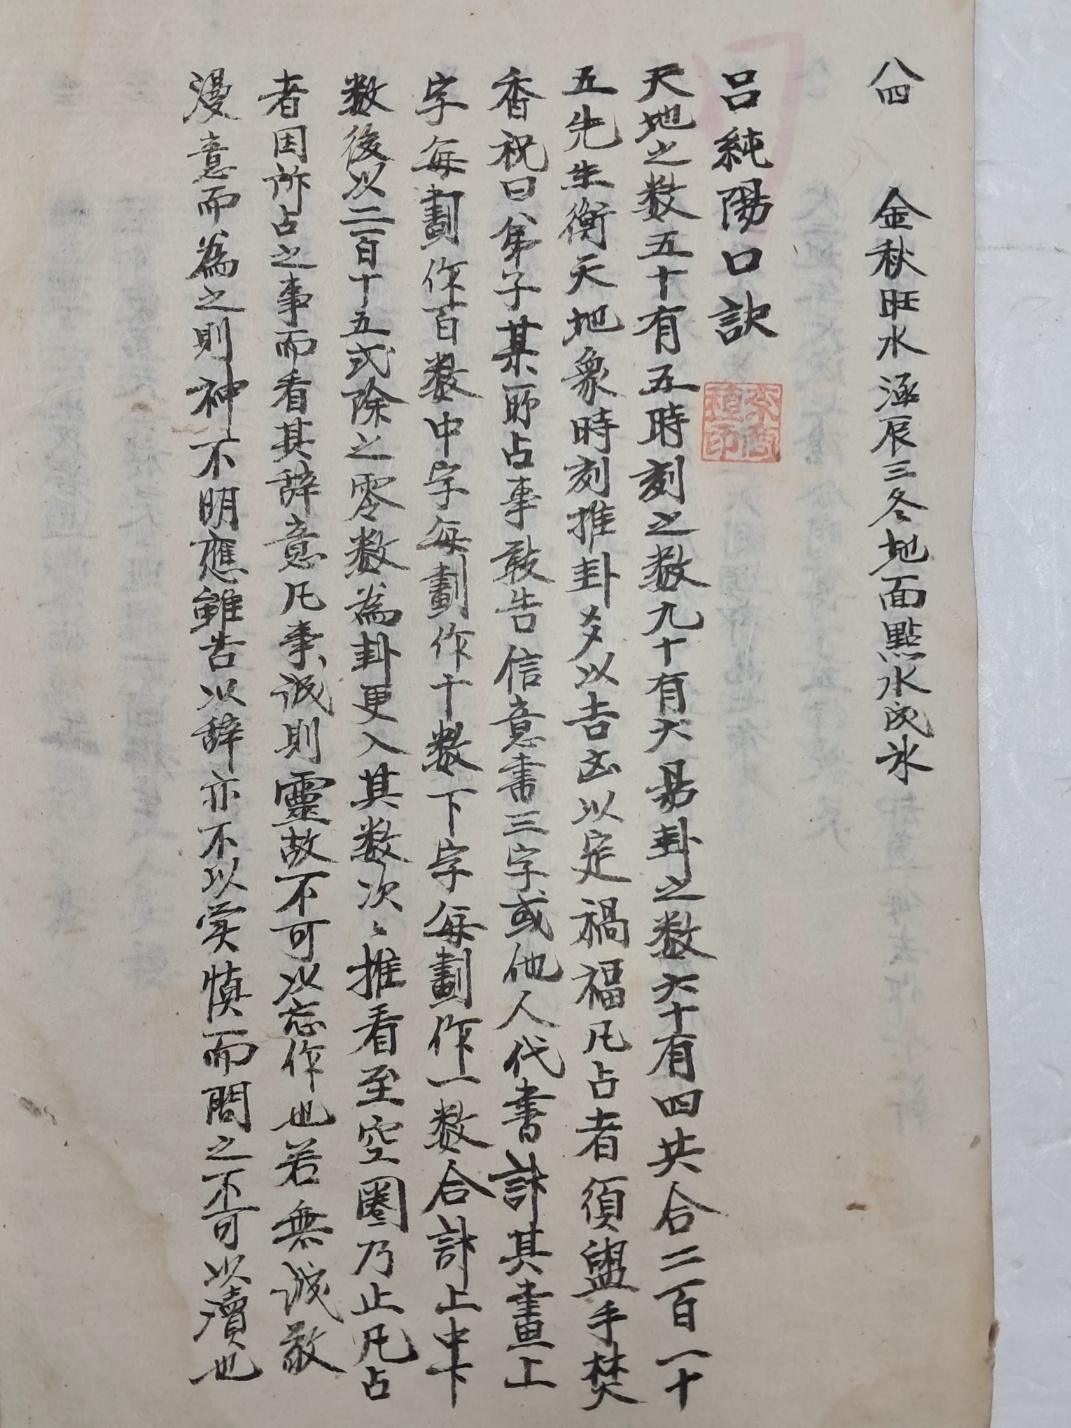 八四　金秋旺水涵辰三冬地面點水成冰
呂純陽口訣
天地之数五十有五時刻之数九十有六易卦之数六十有四共合二百一十
五先生衡天地象時刻推卦爻以吉凶以定禍福凡占者須盥手焚
香祝曰弟子某所占事敢告信意書三字或他人代書計其畫上
字每劃作百数中字每劃作十数下字每劃作一数合計上中下
数後以二百十五式除之零数為卦更入其数次々推看至空圈乃止凡占
者因所占之事而看其辞意凡事誠則靈故不可以忘作也若無誠敬
漫意而為之則神不明應雖告以辞亦不以実慎而問之不可以瀆也